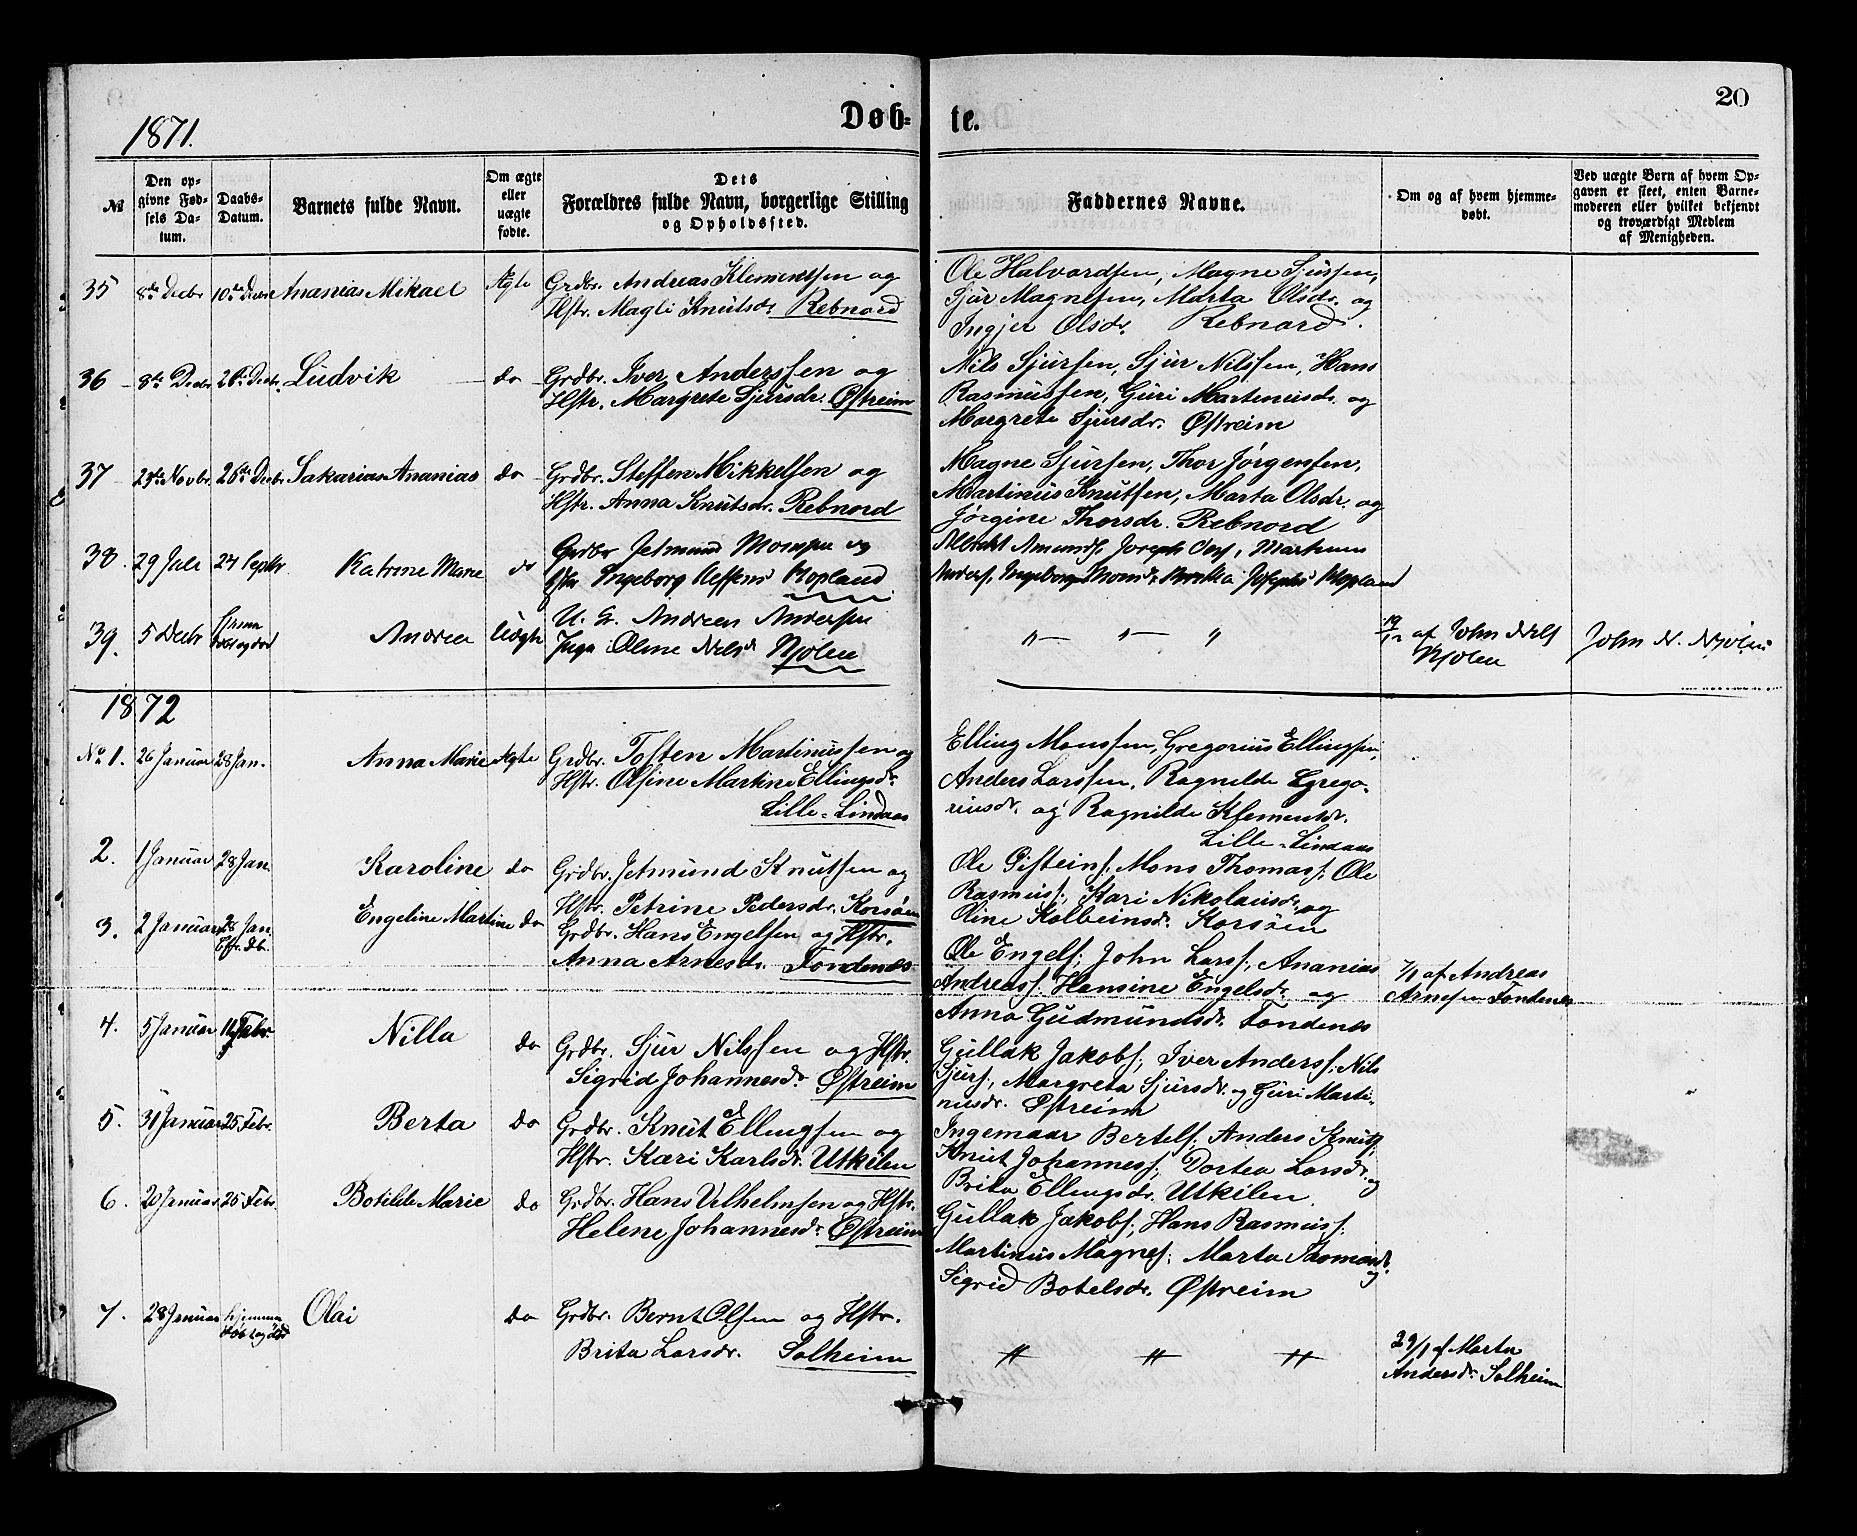 20
1871.
Døb-
te.
№
Den op-
givne Fød-
sels Da-
tum.
Daabs-
Datum.
Barnets fulde Navn.
Om ægte
eller
uægte
fødte.
Dets
Forældres fulde Navn, borgerlige Stilling
og Opholdssted.
Faddernes Navne.
Om og af hvem hjemme-
døbt.
Ved uægte Børn af hvem Op-
gaven er skeet, enten Barne-
moderen eller hvilket bekjendt
og troværdigt Medlem
af Menigheden.
35 8de Decbr 10de Decbr Ananias Mikael Ægte Grdbr. Andreas Klementsen og
Hstr. Magli Knutsdr. Rebnord
Ole Halvordsen, Magne Sjursen,
Sjur Magnesen, Marta Olsdr. og
Ingjer Olsdr. Rebnord.
36 8de Decbr 26de Decbr. Ludvik do Grdbr. Iver Anderssen og
Hstr. Margrete Sjursdr. Østreim
Nils Sjursen, Sjur Nilssen, Hans
Rasmussen, Guri Martinusdr. og
Margrete Sjursdr. Østreim
37 Novbr. 26de Decbr Sakarias Ananias do Grdbr. Steffen Mikkelsen og
Hstr. Anna Knutsdr. Rebnord
Magne Sjursen, Thor Jørgensen,
Martinus Knutsen, Marta Olsdr. og
Jørgine Thorsdr. Rebnord
38. 29 Juli 24 Septbr. Katrine Marie do Grdbr Jetmund Monsen og
Ingeborg Kopland
Ingeborg Kopland
39. 5 Decbr Andrea Uægte U. G. Andreas Andersen
Pige Oline Nilsdr Njølen
" " "
19/12 af John Nils
Njølen
John N. Njølen
1872
No 1. 26 Januar 28 Jan. Anna Marie Ægte Grdbr. Tosten Martinussen og
Hstr. Olsine Martine Ellingsdr.
Lille-Lindaas
Elling Monssen, Gregorius Ellingsen,
Anders Larssen, Ragnilde Grego-
riusdr. og Ragnilde Klementsdr.
Lille-Lindaas
2. 1 Januar 28 Jan. Karoline do Grdbr. Jetmund Knutsen og
Hstr. Petrine Pedersdr. Korsøen
Ole Gisteins., Mons Thomass., Ole
Rasmuss., Kari Nikolausdr. og
Oline Kolbeinsdr. Korsøen
3. 2 Januar 28 Jan. Engeline Martine do Grdbr. Hans Engelsen og Hstr.
Anna Arnesdr. Fondenes
Ole Engels., John Larss., Ananias
Andreass. Hansine Engelsdr. og
Anna Gudmundsdr. Fondenes
7/1 af Andreas
Arnesen Fondenes
4. 5 Januar 11 Febr. Nilla do Grdbr. Sjur Nilssen og Hstr.
Sigrid Johannesdr. Østreim
Gullak Jakobs., Iver Anderss. Nils
Sjurs., Margreta Sjursdr. og Guri Marti-
nusdr. Østreim
5. Januar 25 Febr. Berta do Grdbr. Knut Ellingsen og
Hstr. Kari Karlsdr. Utkilen
Ingemaar Bertels. Anders Knuts.
Knut Johanness., Dortea Larsdr. og
Brita Ellingsdr. Utkilen
6. 20 Januar 25 Febr. Botilde Marie do Grdbr. Hans Velhelmsen og Hstr.
Helene Johannesdr. Østreim
Gullak Jakobs., Hans Rasmuss.
Martinus Magnes., Marta Thomasdr. og
Sigrid Botelsdr. Østreim
7. 28 Januar hjemme
døbt og død Olai do Grdbr. Bernt Olsen og Hstr.
Brita Larsdr. Solheim
" " "
29/1 af Marta
Andersdr. Solheim